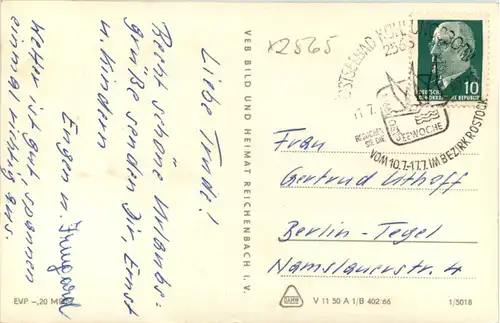 Liebe Trude!
Recht schöne Urlaubs-
grüße senden Dir, Ernst
u. Kindern
Eugen u. Irmgard
Wetter ist gut, spannen
einmal richtig aus.
VEB BILD UND HEIMAT REICHENBACH I. V.
EVP -,20 M
x2565
OSTSEEBAD KÜHLUNGSBORN
2565
11.7.
BESUCHEN
SIE DIE
OSTSEEWOCHE
VOM 10.7.-17.7. IM BEZIRK ROSTOCK
10
DEUTSCHE
DEMOKRATISCHE REPUBLIK
Frau
Gertrud Uthoff
Berlin-Tegel
Namslauerstr. 4
V 11 50 A 1/B 402/66
1/5018